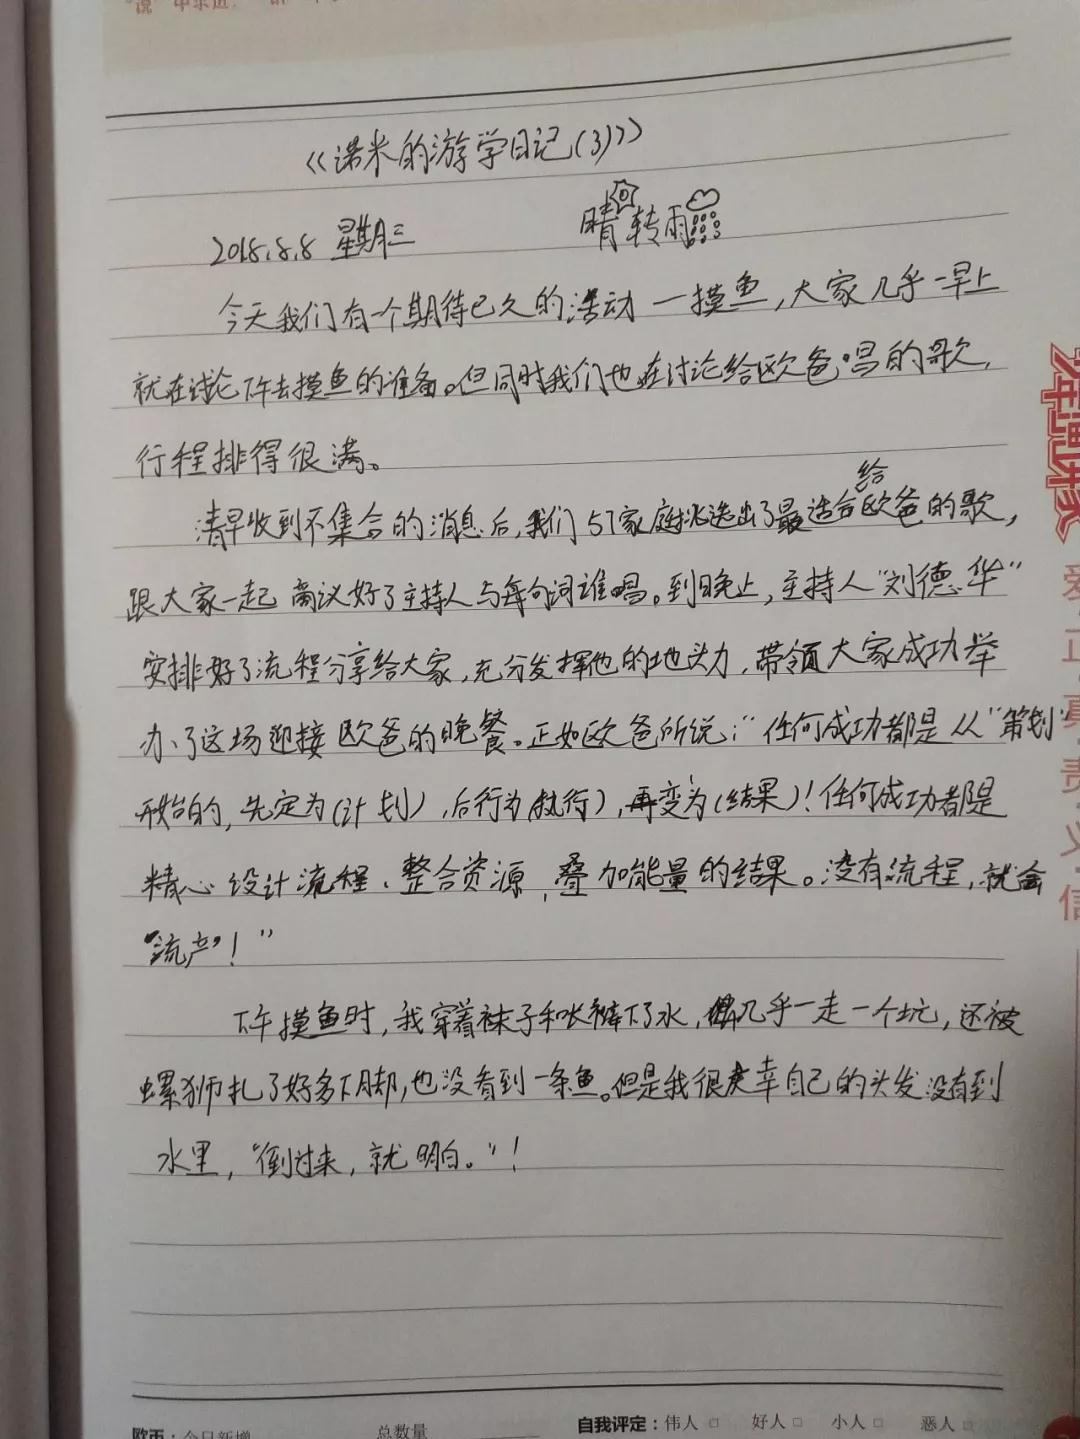 《诺米的游学日记(3)》
2018.8.8 星期三 晴转雨
今天我们有一个期待已久的活动一摸鱼,大家几乎一早上
就在讨论下午去摸鱼的准备。但同时我们也在讨论给欧爸唱的歌,
行程排得很满。
给
清早收到不集合的消息后,我们57家庭挑选出了最适合欧爸的歌,
跟大家一起商议好了主持人与每句词谁唱。到晚上,主持人"刘德华"
安排好了流程分享给大家,充分发挥他的地头力,带领大家成功举
办了这场迎接欧爸的晚餐。正如欧爸所说:"任何成功都是从"策划"
开始的,先定为(计划),后行为(执行),再变为(结果)!任何成功都是
精心设计流程、整合资源,叠加能量的结果。没有流程,就会
"流产"!"
下午摸鱼时,我穿着袜子和长裤下了水,几乎一走一个坑,还被
螺狮扎了好多下脚,也没看到一条鱼。但是我很庆幸自己的头发没有到
水里,"倒过来,就明白。"!
少年演讲家
爱 正 真 责 义 信
欧币:今日新增 总数量 自我评定:伟人□ 好人□ 小人□ 恶人□